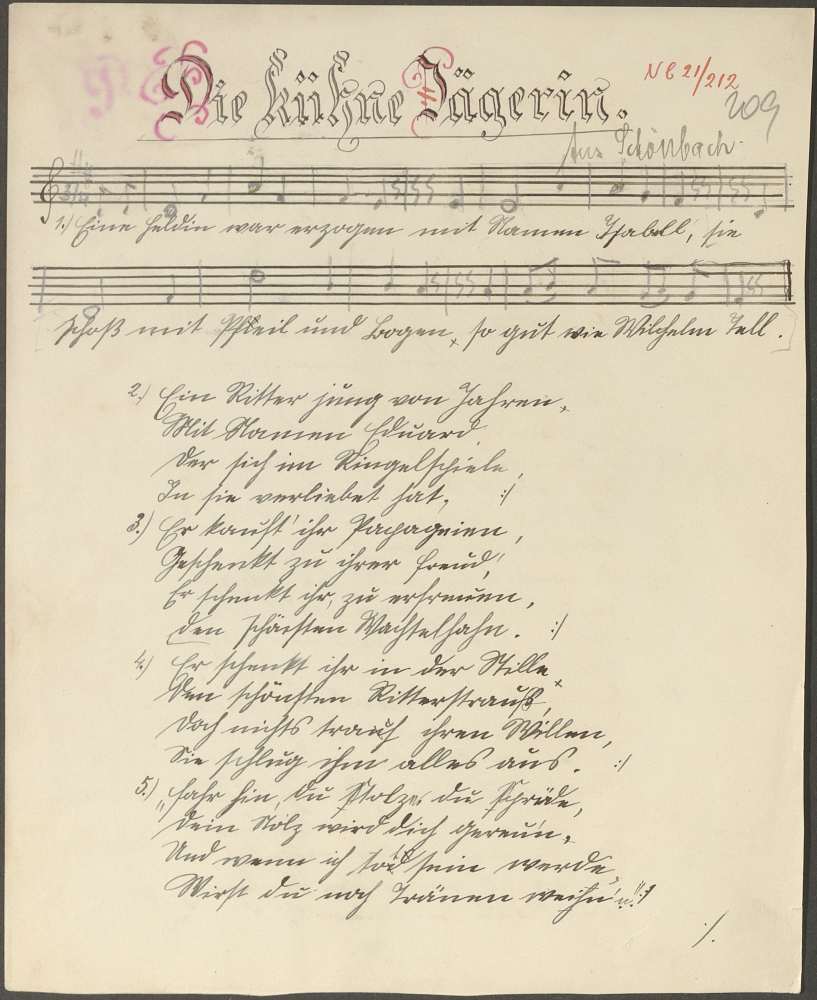 Die kühne Jägerin.
NB 21/212
209
Aus Schönbach.
1.) Eine Heldin war erzogen mit Namen Isabell, sie
schoß mit Pfeil und Bogen, so gut wie Wilhelm Tell.
2.) Ein Ritter jung von Jahren,
Mit Namen Eduard
Der sich im Ringelschiele,
In sie verliebet hat, :/
3.) Er kauft' ihr Papageien,
Geschenkt zu ihrer Freud,'
Er schenkt ihr, zu erfreuen,
Den Wachtelhahn. :/
4.) Er schenkt ihr in der Stille,
Den schönsten Ritterstrauß,
Doch nichts ihren Willen,
Sie schlug ihm alles aus. :/
5.) „Fahr hin, du Stolze, du Spröde,
Dein Stolz wird dich gereu'n,
Und wenn ich tod sein werde,
Wirst du noch Tränen weih'n!" :/
./.